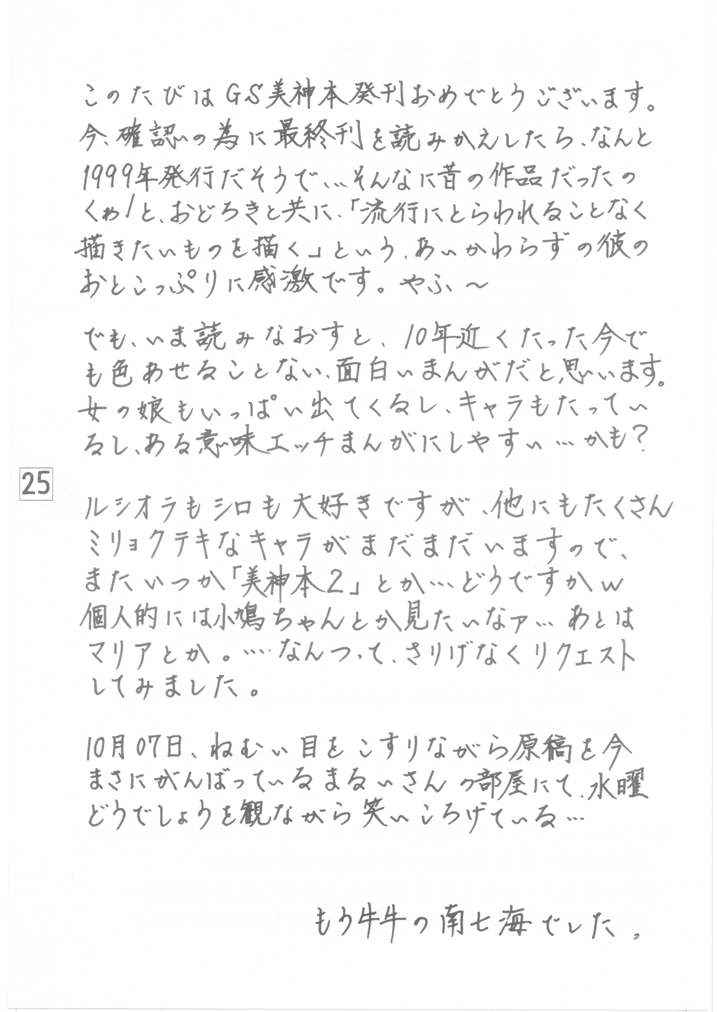 このたびはGS美神本発刊おめでとうございます。
今、確認の為に最終刊を読みかえしたら、なんと
1999年発行だそうで、、、そんなに昔の作品だったの
くゎ!と、おどろきと共に、「流行にとらわれることなく
描きたいものを描く」という、あいかわらずの彼の
おとこっぷりに感激です。やふ〜
でも、いま読みなおすと、10年近くたった今で
も色あせることない、面白いまんがだと、思います。
女の娘もいっぱい出てくるし、キャラもたってい
るし、ある意味エッチまんがにしやすい…かも?
25
ルシオラもシロも大好きですが、他にもたくさん
ミリョクテキなキャラがまだまだいますので、
またいつか「美神本2」とか…どうですかw
個人的には小鳩ちゃんとか見たいなァ… あとは
マリアとか。…なんつって、さりげなくリクエスト
してみました。
10月07日、ねむい目をこすりながら原稿を今
まさにがんばっているまるぃさんの部屋にて、水曜
どうでしょうを観ながら笑いころげている…
もう牛牛の南七海でした。